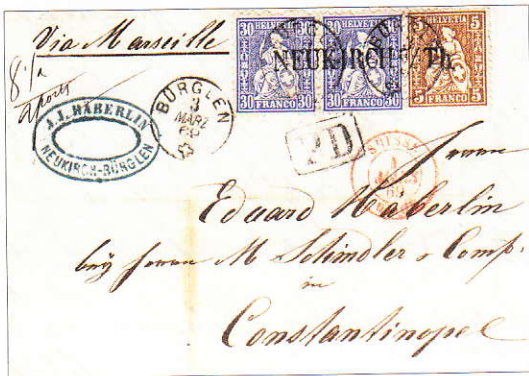 Via Marseille
30 HELVETIA 30
30 FRANCO 30
30 HELVETIA 30
30 FRANCO 30
5 HELVETIA 5
5 FRANCO 5
NEUKIRCH / Th.
J.J. HÄBERLIN
NEUKIRCH-BÜRGLEN
BÜRGLEN
3
MÄRZ
69
PD
SUISSE
69
Herrn
Eduard Haberlin
bey Herrn M Schindler & Comp.
in
Constantinopel